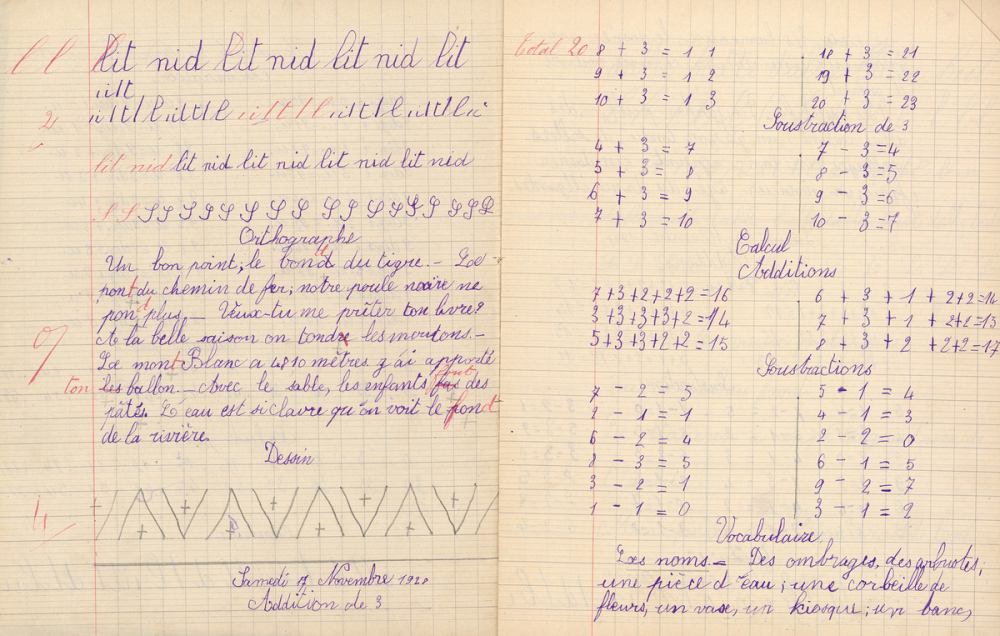 l l lit nid lit nid lit nid lit
iilt
2 iilttl l iilttl l iilttl l iilttl iilttl
lit nid lit nid lit nid lit nid lit nid
Orthographe
Un bon point, le bond du tigre. - Le
pont du chemin de fer; notre poule noire ne
pond plus. - Veux-tu me prêter ton livre?
A la belle saison on tondre les moutons. -
Le mont Blanc a 4810 mètres j'ai apporté
ton les ballon. - Avec le sable, les enfants font des
pâtés. L'eau est si claire qu'on voit le fond
de la rivière.
Dessin
4
Samedi 17 Novembre 1928
Addition de 3
Total 20
8 + 3 = 1 1
9 + 3 = 1 2
10 + 3 = 1 3
4 + 3 = 7
5 + 3 = 8
6 + 3 = 9
7 + 3 = 10
18 + 3 = 21
19 + 3 = 22
20 + 3 = 23
Soustraction de 3
7 - 3 = 4
8 - 3 = 5
9 - 3 = 6
10 - 3 = 7
Calcul
Additions
7+3+2+2+2=16
3+3+3+3+2=14
5+3+3+2+2=15
6 + 3 + 1 + 2+2=14
7 + 3 + 1 + 2+2=15
8 + 3 + 2 + 2+2=17
Soustractions
7 - 2 = 5
2 - 1 = 1
6 - 2 = 4
8 - 3 = 5
3 - 2 = 1
1 - 1 = 0
5 - 1 = 4
4 - 1 = 3
2 - 2 = 0
6 - 1 = 5
9 - 2 = 7
3 - 1 = 2
Vocabulaire
Les noms. - Des ombrages, des arbustes;
une pièce d'eau; une corbeille de
fleurs, un vase, un kiosque; un banc,